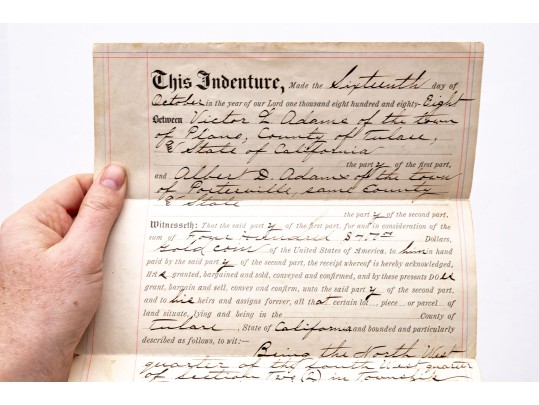 This Indenture, Made the Sixteenth day of
October in the year of our Lord one thousand eight hundred and eighty-Eight
Between Victor D Adams of the town
of Plano, County of Tulare,
& State of California
the party of the first part,
and Albert D. Adams of the town
of Porterville, same County
& State
the party of the second part,
Witnesseth: That the said party of the first part, for and in consideration of the
sum of Four Hundred Dollars,
Gold coin of the United States of America, to him in hand
paid by the said party of the second part, the receipt whereof is hereby acknowledged,
Has granted, bargained and sold, conveyed and confirmed, and by these presents DOes
grant, bargain and sell, convey and confirm, unto the said party of the second
part, and to his heirs and assigns forever, all that certain lot, piece or parcel of
land situate, lying and being in the County of
Tulare, State of California and bounded and particularly
described as follows, to wit:—
Being the North West
quarter of the South West quarter
of Section Two (2) in Township